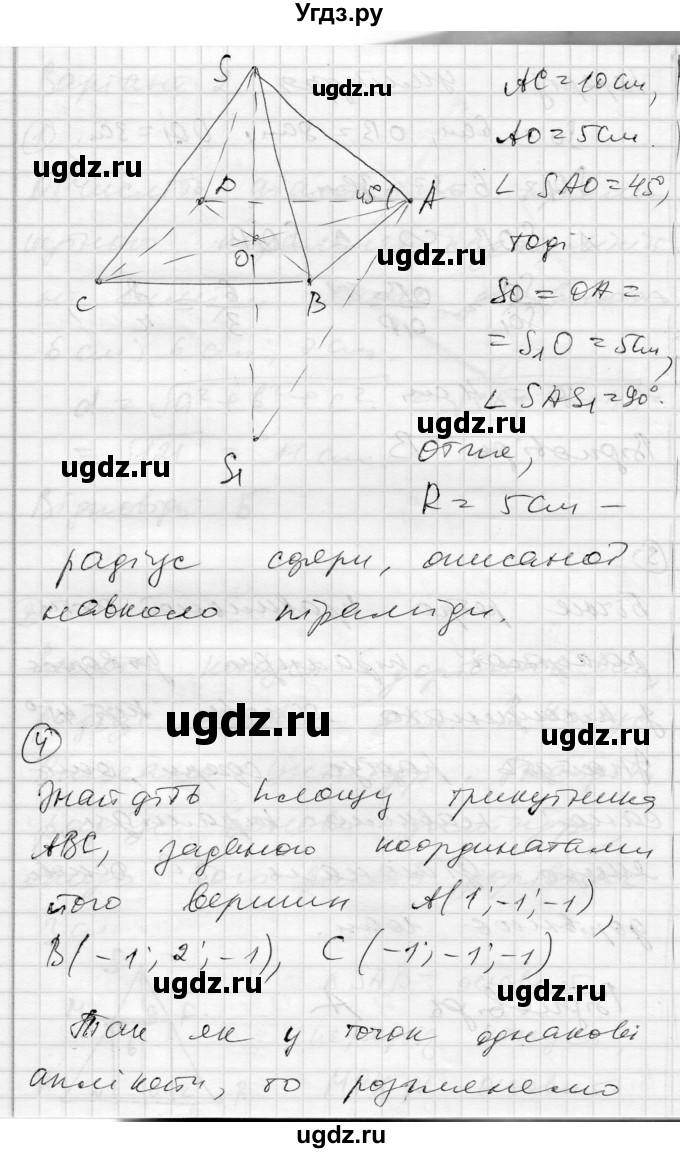 Угдз.ру
S
ugdz.ru
AC = 10 см,
AO = 5 см.
ugdz.ru
D
45°
A
∠ SAO = 45°,
ugdz.ru
O
тоді
C
B
SO = OA =
= S₁O = 5 см,
∠ SAS₁ = 90°.
ugdz.ru
ugdz.ru
S₁
Отже,
R = 5 см –
радіус сфери, описаної
навколо піраміди.
ugdz.ru
ugdz.ru
4
Знайдіть площу трикутника
ABC, заданого координатами
ugdz.ru
його вершин A(1; -1; -1),
B(-1; 2; -1), C(-1; -1; -1)
ugdz.ru
ugdz.ru
Так як у точок однакові
аплікати, то розглянемо
ugdz.ru